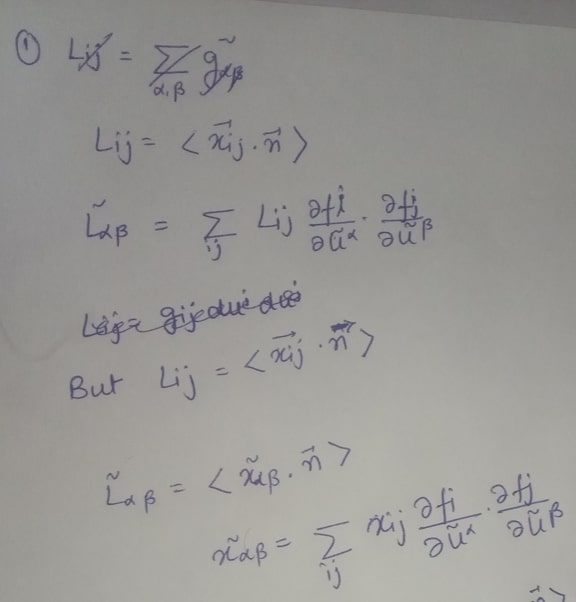 ① Lij = Σ α,β g̃αβ
Lij = < x⃗ij . n⃗ >
L̃αβ = Σ ij Lij ∂fi/∂ũα . ∂fj/∂ũβ
But Lij = < x⃗ij . n⃗ >
L̃αβ = < x̃αβ . n⃗ >
x̃αβ = Σ ij xij ∂fi/∂ũα . ∂fj/∂ũβ